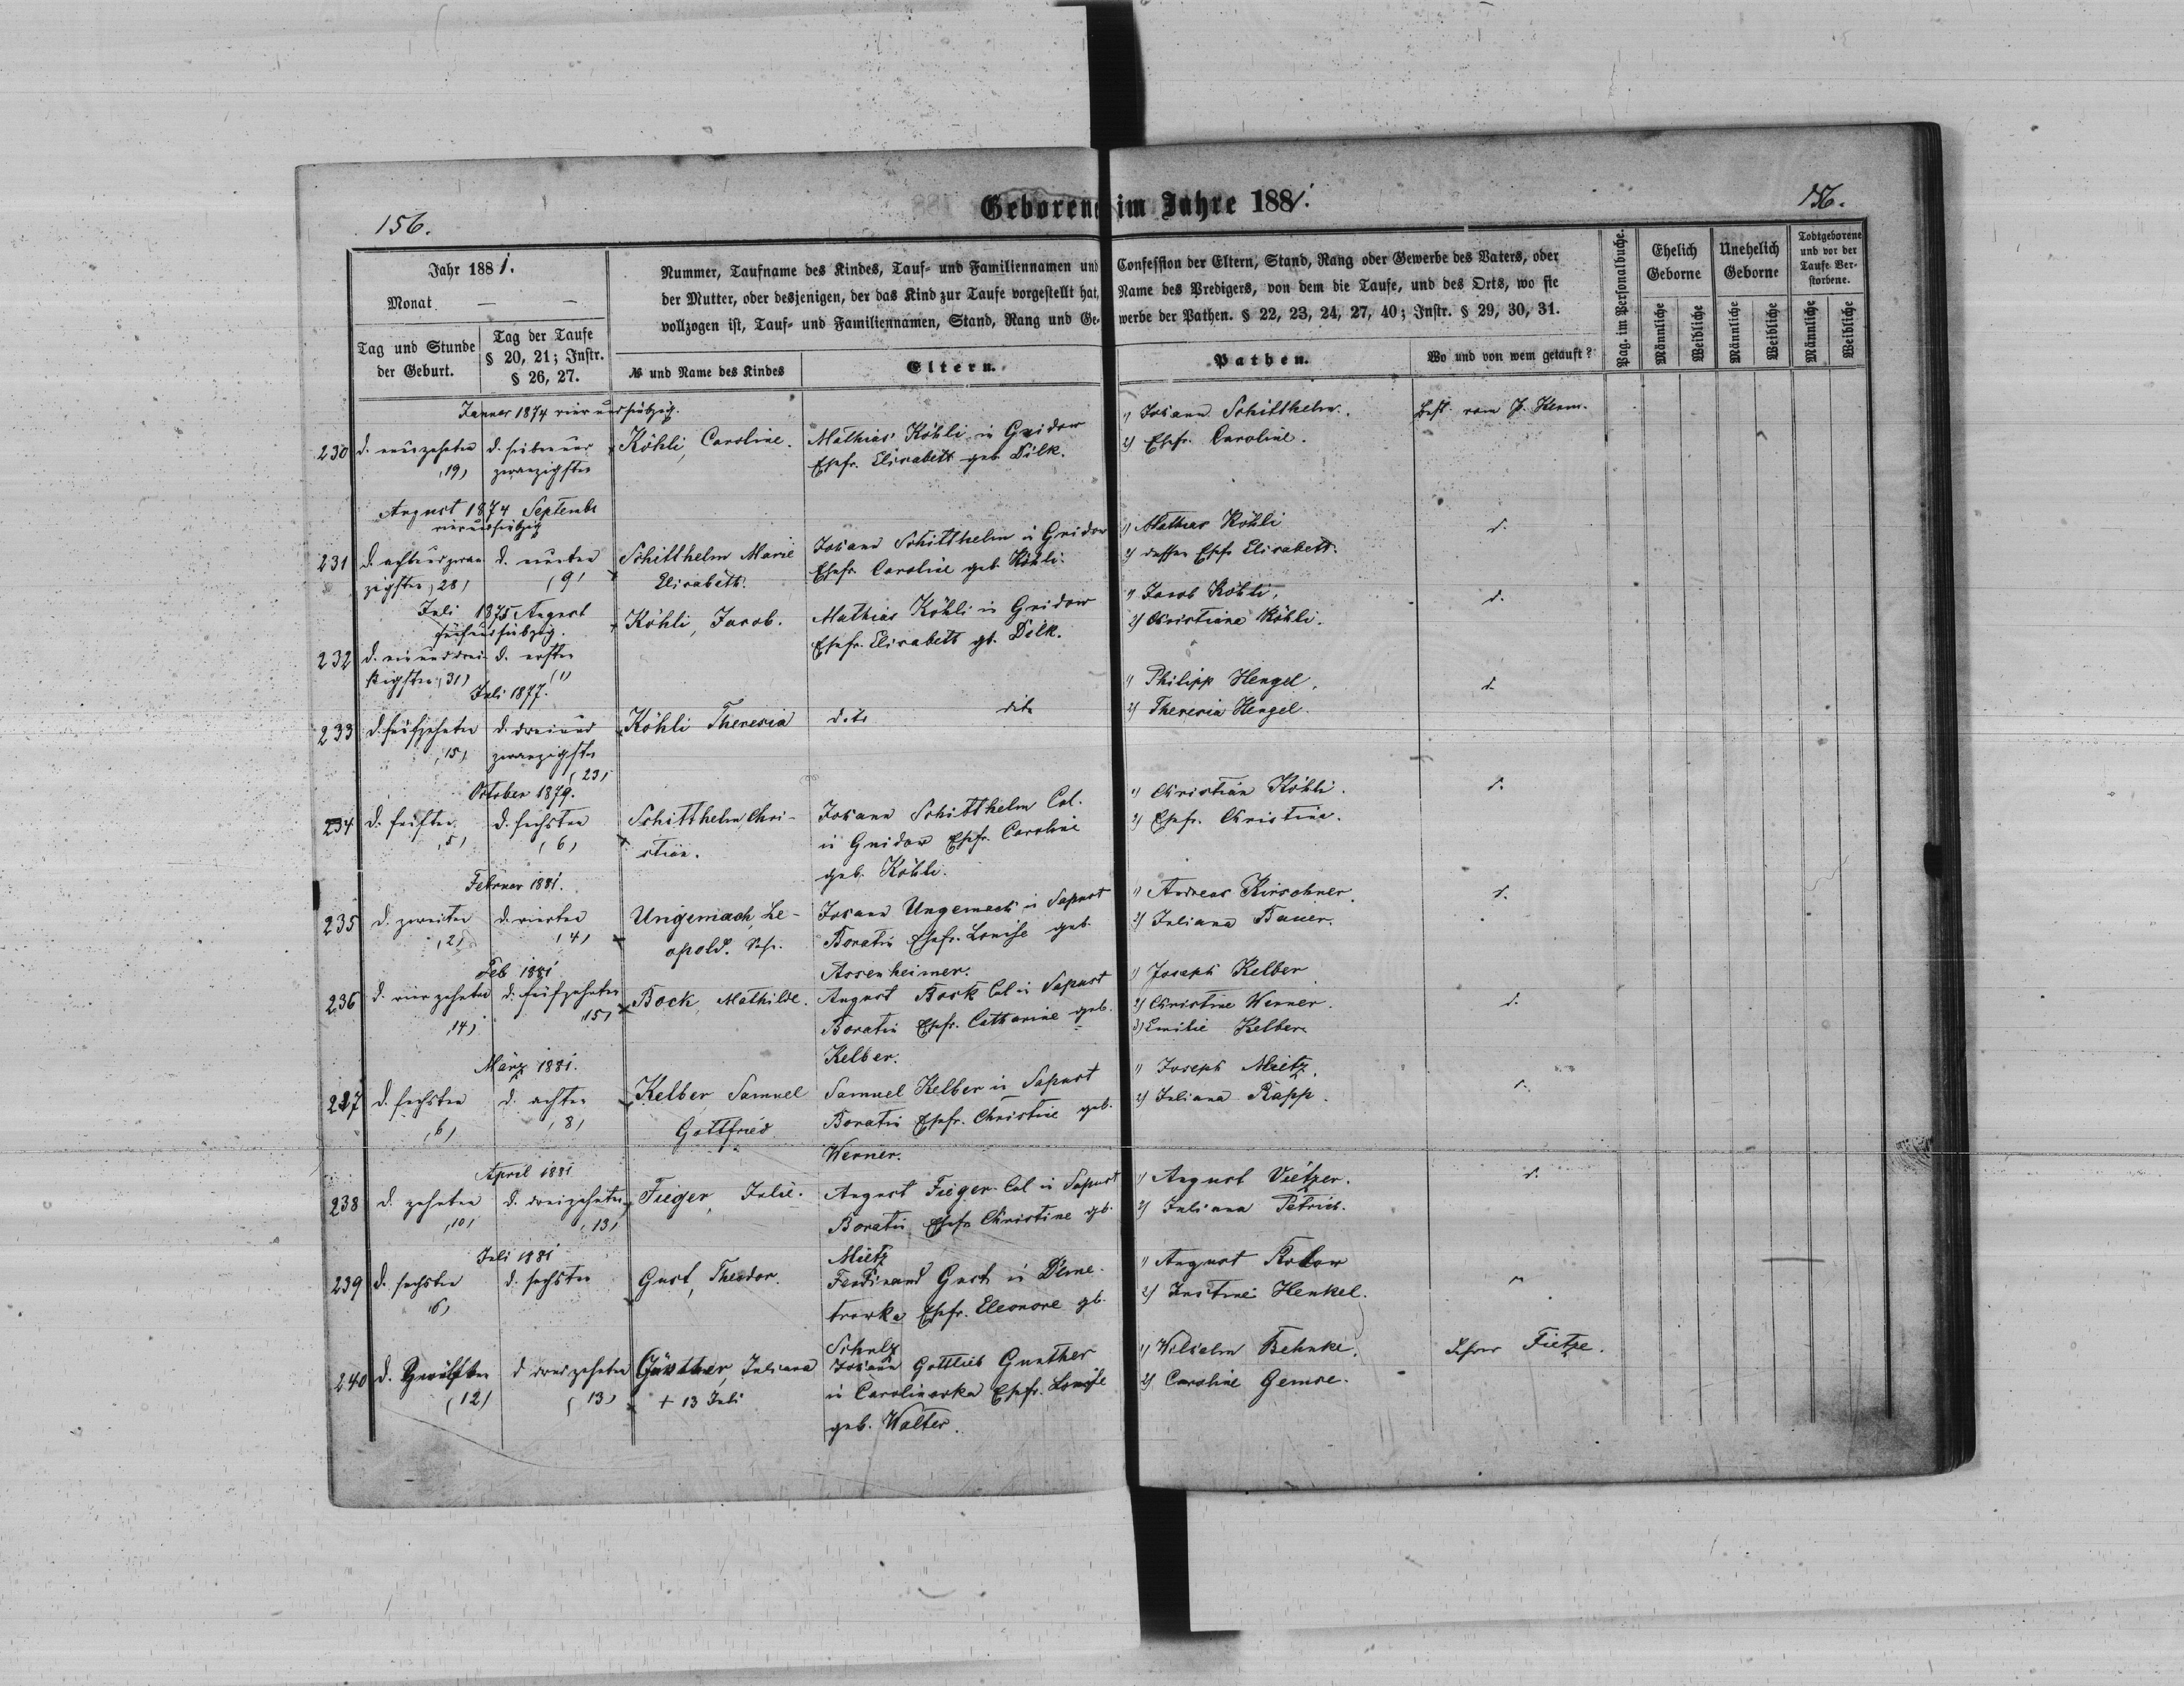 156.
Geborene im Jahre 1881.
156.
Jahr 1881.
Monat — —
Tag und Stunde der Geburt.
Tag der Taufe § 20, 21; Instr. § 26, 27.
Nummer, Taufname des Kindes, Tauf- und Familiennamen und Confession der Eltern, Stand, Rang oder Gewerbe des Vaters, oder
der Mutter, oder desjenigen, der das Kind zur Taufe vorgestellt hat, Name des Predigers, von dem die Taufe, und des Orts, wo sie
vollzogen ist, Tauf- und Familiennamen, Stand, Rang und Gewerbe der Pathen. § 22, 23, 24, 27, 40; Instr. § 29, 30, 31.
№ und Name des Kindes
Eltern.
Pathen.
Wo und von wem getauft?
Pag. im Personalbuche.
Ehelich Geborne
Unehelich Geborne
Todtgeborene und vor der Taufe Verstorbene.
Männliche
Weibliche
Männliche
Weibliche
Männliche
Weibliche
Januar 1874 vierundsiebzig.
230 d. neunzehnten d. siebenund Köhli, Caroline. Mathias Köhli in Gnidow 1) Johann Schitthelm. Best. vom P.
(19) zwanzigsten Ehefr. Elisabeth geb. Dilk. 2) Ehefr. Caroline.
August 1874 Septembr
vierundsiebzig
231 d. achtundzwan d. neunten Schitthelm Marie Johann Schitthelm in Gnidow 1) Mathias Köhli d.
zigsten (28) (9) Elisabeth. Ehefr. Caroline geb. Köhli. 2) dessen Ehefr Elisabeth.
Juli 1875 August
fünfundsiebzig.
Köhli, Jacob. Mathias Köhli in Gnidow 1) Jacob Köhli, d.
232 d. einunddrei d. ersten Ehefr. Elisabeth gb. Dilk. 2) Christiana Köhli.
ßigsten (31) (1)
Juli 1877.
233 d. fünfzehnten d. dreiund Köhli Theresia dito dito 1) Philipp Hengel. d.
(15) zwanzigsten 2) Theresia Hengel.
(23)
October 1879.
234 d. fünften d. sechsten Schitthelm, Chri- Johann Schitthelm Col. 1) Christian Köhli. d.
(5) (6) stian. in Gnidow Ehefr. Caroline 2) Ehefr. Christina.
geb. Köhli.
Februar 1881.
235 d. zweiten d. vierten Ungemach, Le- Johann Ungemach in Sapust 1) Andreas Kirschner. d.
(2) (4) opold. Boratin Ehefr. Louise geb. 2) Juliana Bauer.
Assenheimer.
Feb 1881
236 d. vierzehnten d. fünfzehnten Bock, Mathilde. August Bock Col in Sapust 1) Joseph Kelber
(14) (15) Boratin Ehefr. Catharine geb. 2) Christine Werner. d.
Kelber. 3) Emilie Kelber
März 1881.
237 d. sechsten d. achten Kelber Samuel Samuel Kelber in Sapust 1) Joseph Mietz. d.
(6) (8) Gottfried Boratin Ehefr. Christine geb. 2) Juliana Rapp.
Werner.
April 1881
238 d. zehnten d. dreizehnten Fieger, Julie. August Fieger Col in Sapust 1) August Vietzer. d.
(10) (13) Boratin Ehefr Christine gb. 2) Juliana Petrich.
Mietz
Juli 1881
239 d. sechsten d. sechsten Gust, Theodor. Ferdinand Gust in Deme- 1) August
(6) trowka Ehefr. Eleonore gb. 2) Justine Henkel.
Schulz
240 d. Zwölften d dreizehnten Günther, Juliana Johann Gottlieb Gunther 1) Wilhelm Behnke.
(12) (13) + 13 Juli in Carolinowka Ehefr. Louise 2) Caroline Gemse. Lehrer Fietze.
geb. Walter.